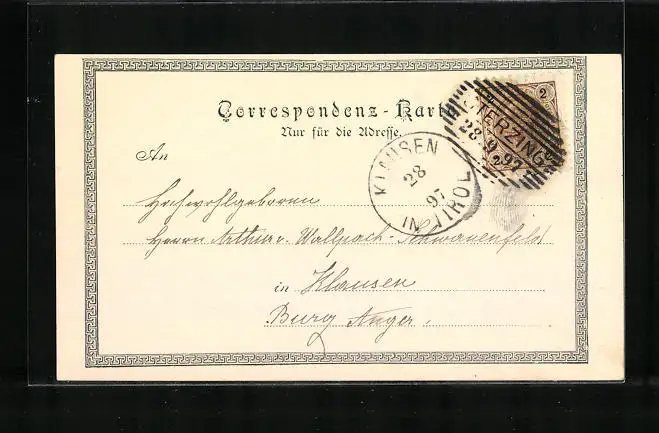 Correspondenz-Karte
Nur für die Adresse.
2
STERZING
28.9.97
2
KLAUSEN
28
97
IN TIROL
An
Hochwohlgeboren
Herrn Arthur v. Wallpach-Schwanenfeld
in Klausen
Burg Anger.